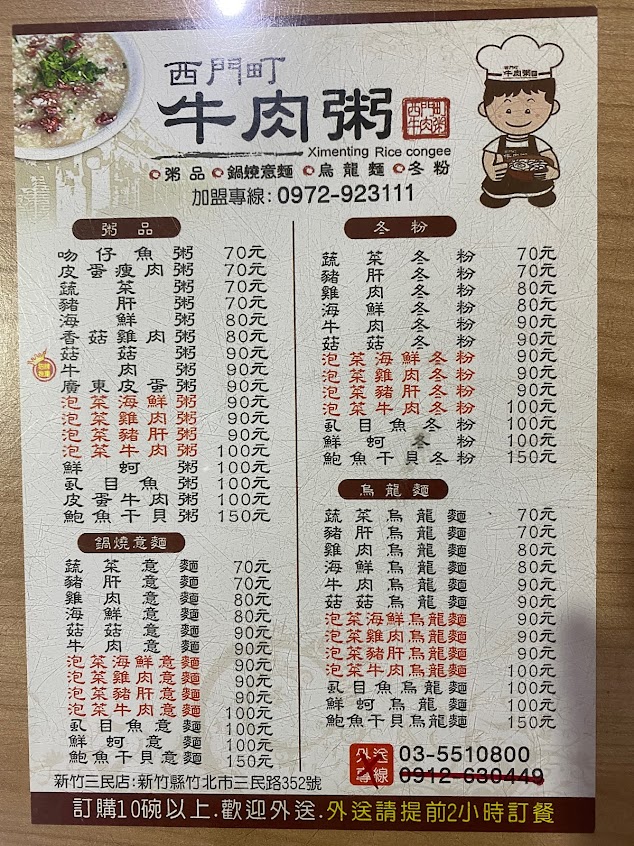 西門町
牛肉粥
西門町
牛肉粥
Ximenting Rice congee
粥品 鍋燒意麵 烏龍麵 冬粉
加盟專線: 0972-923111
粥品
吻仔魚粥 70元
皮蛋瘦肉粥 70元
蔬菜粥 70元
豬肝粥 70元
海鮮粥 80元
香菇雞肉粥 80元
菇菇粥 90元
牛肉粥 90元
廣東皮蛋粥 90元
泡菜海鮮粥 90元
泡菜雞肉粥 90元
泡菜豬肝粥 90元
泡菜牛肉粥 100元
鮮蚵粥 100元
虱目魚粥 100元
皮蛋牛肉粥 100元
鮑魚干貝粥 150元
鍋燒意麵
蔬菜意麵 70元
豬肝意麵 70元
雞肉意麵 80元
海鮮意麵 80元
菇菇意麵 90元
牛肉意麵 90元
泡菜海鮮意麵 90元
泡菜雞肉意麵 90元
泡菜豬肝意麵 90元
泡菜牛肉意麵 100元
虱目魚意麵 100元
鮮蚵意麵 100元
鮑魚干貝意麵 150元
冬粉
蔬菜冬粉 70元
豬肝冬粉 70元
雞肉冬粉 80元
海鮮冬粉 80元
牛肉冬粉 90元
菇菇冬粉 90元
泡菜海鮮冬粉 90元
泡菜雞肉冬粉 90元
泡菜豬肝冬粉 90元
泡菜牛肉冬粉 100元
虱目魚冬粉 100元
鮮蚵冬粉 100元
鮑魚干貝冬粉 150元
烏龍麵
蔬菜烏龍麵 70元
豬肝烏龍麵 70元
雞肉烏龍麵 80元
海鮮烏龍麵 80元
牛肉烏龍麵 90元
菇菇烏龍麵 90元
泡菜海鮮烏龍麵 90元
泡菜雞肉烏龍麵 90元
泡菜豬肝烏龍麵 90元
泡菜牛肉烏龍麵 100元
虱目魚烏龍麵 100元
鮮蚵烏龍麵 100元
鮑魚干貝烏龍麵 150元
外送 03-5510800
專線 0912-630449
新竹三民店:新竹縣竹北市三民路352號
訂購10碗以上.歡迎外送.外送請提前2小時訂餐